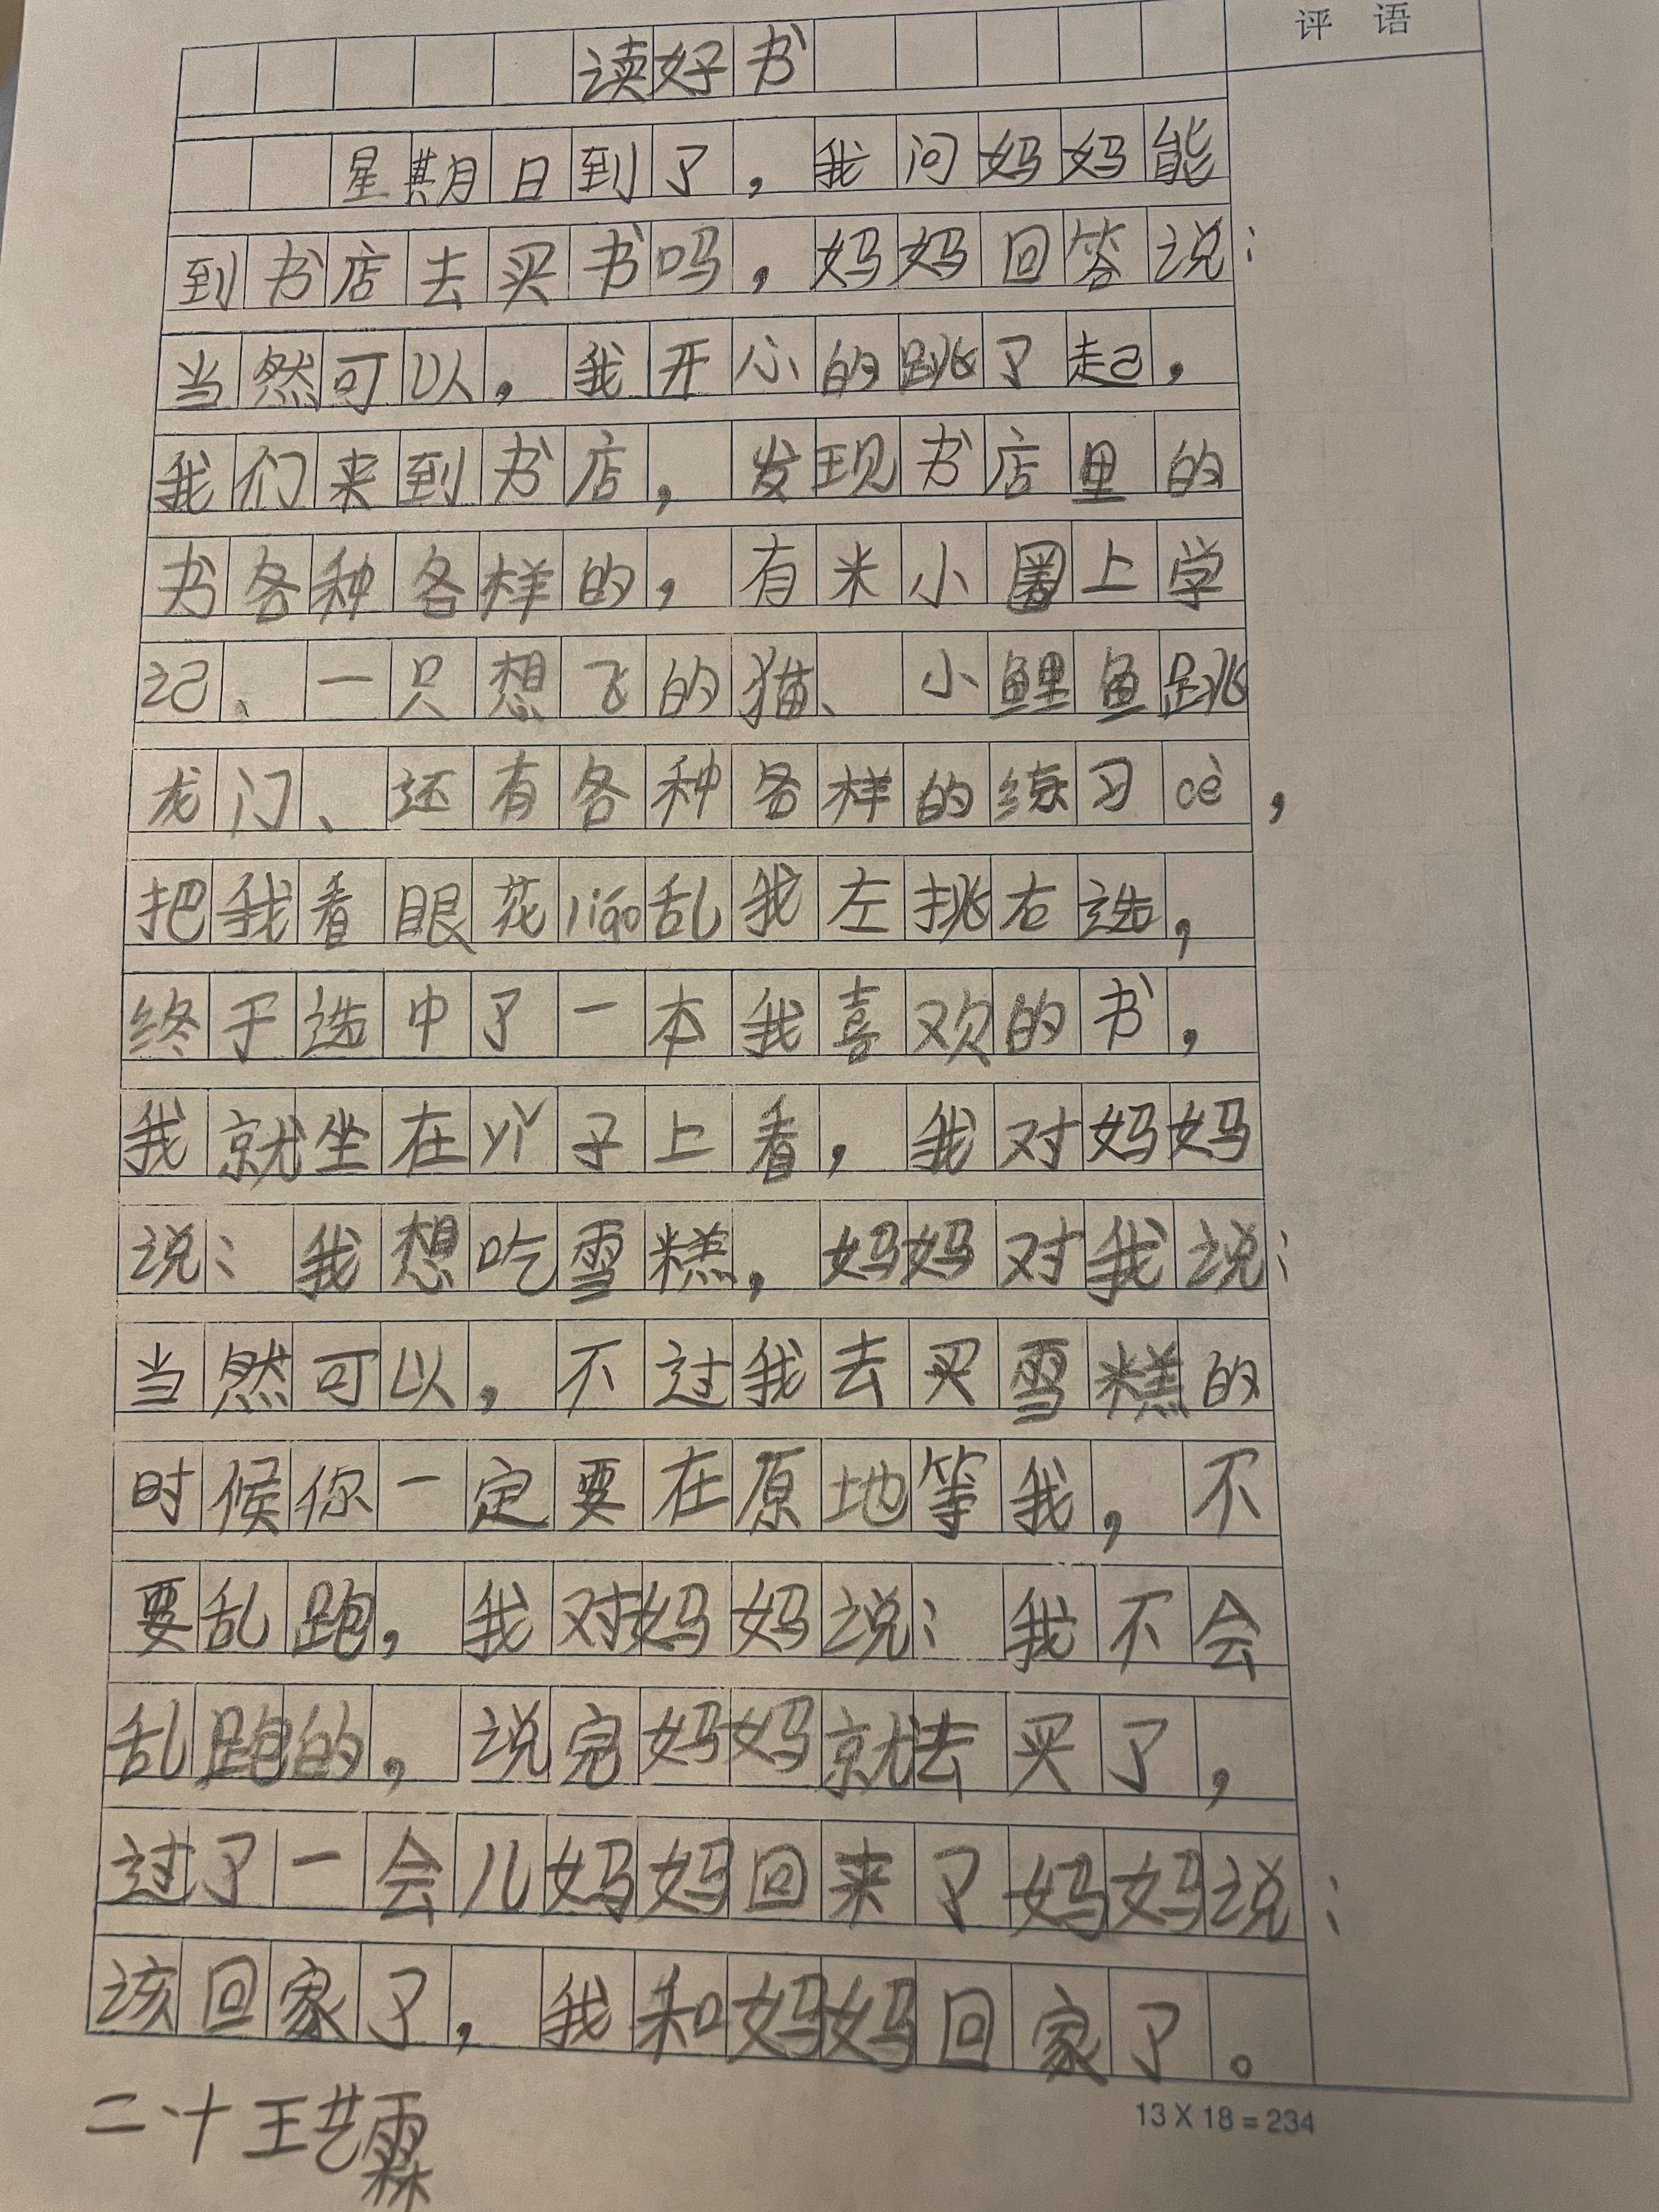 评语
读好书
星期日到了，我问妈妈能
到书店去买书吗，妈妈回答说：
当然可以，我开心的跳了起，
我们来到书店，发现书店里的
书各种各样的，有米小圈上学
记、一只想飞的猫、小鲤鱼跳
龙门、还有各种各样的练习cè，
把我看眼花liáo乱我左挑右选，
终于选中了一本我喜欢的书，
我就坐在yǐ子上看，我对妈妈
说：我想吃雪糕，妈妈对我说：
当然可以，不过我去买雪糕的
时候你一定要在原地等我，不
要乱跑，我对妈妈说：我不会
乱跑的，说完妈妈就去买了，
过了一会儿妈妈回来了妈妈说：
该回家了，我和妈妈回家了。
二·十王艺霖
13 X 18 = 234